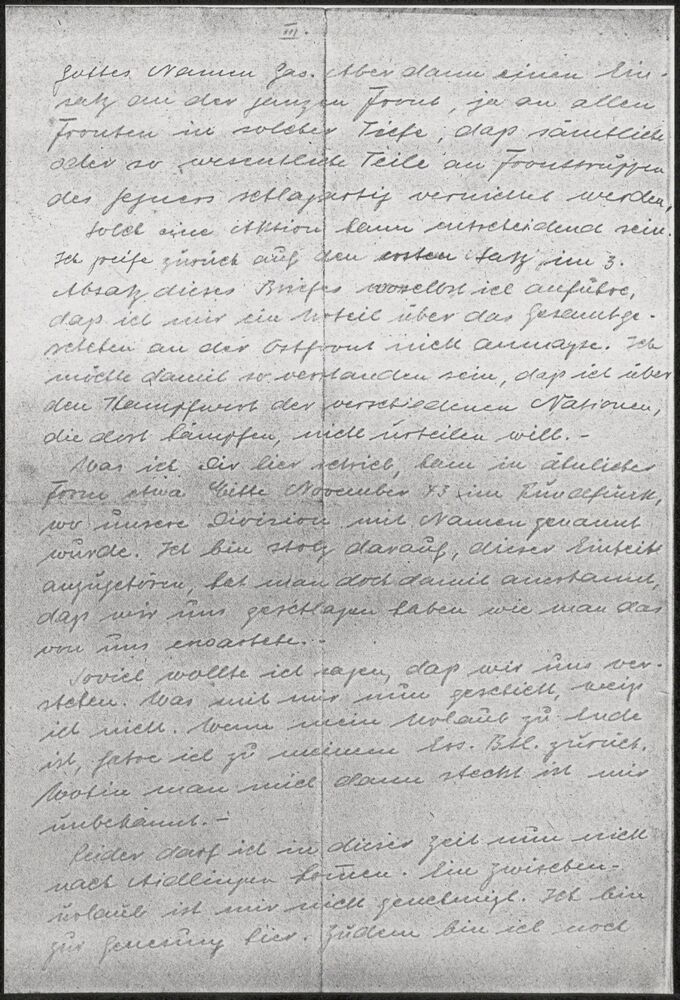 III.
Gottes Namen Gas. Aber dann einen Ein-
satz an der ganzen Front, ja an allen
Fronten in solcher Tiefe, daß sämtliche
oder so wesentliche Teile an Fronttruppen
des Gegners schlagartig vernichtet werden,
Solch eine Aktion kann entscheidend sein.
Ich greife zurück auf den ersten Satz im 3.
Absatz dieses Briefes woselbst ich anführe,
daß ich mir ein Urteil über das Gesamtge-
schehen an der Ostfront nicht anmaße. Ich
möchte damit so verstanden sein, daß ich über
den Kampfwert der verschiedenen Nationen,
die dort kämpfen, nicht urteilen will. -
Was ich Dir hier schrieb, kam in ähnlicher
Form etwa Mitte November 43 im Rundfunk,
wo unsere Division mit Namen genannt
wurde. Ich bin stolz darauf, dieser Einheit
anzugehören, hat man doch damit anerkannt,
daß wir uns geschlagen haben wie man das
von uns erwartete. -
Soviel wollte ich sagen, daß wir uns ver-
stehen. Was mit mir nun geschieht, weiß
ich nicht. Wenn mein Urlaub zu Ende
ist, fahre ich zu meinem Ers. Btl. zurück.
Wohin man mich dann steckt ist mir
unbekannt. -
Leider darf ich in dieser Zeit nun nicht
nach Aidlingen kommen. Ein Zwischen-
urlaub ist mir nicht genehmigt. Ich bin
zur Genesung hier. Zudem bin ich noch